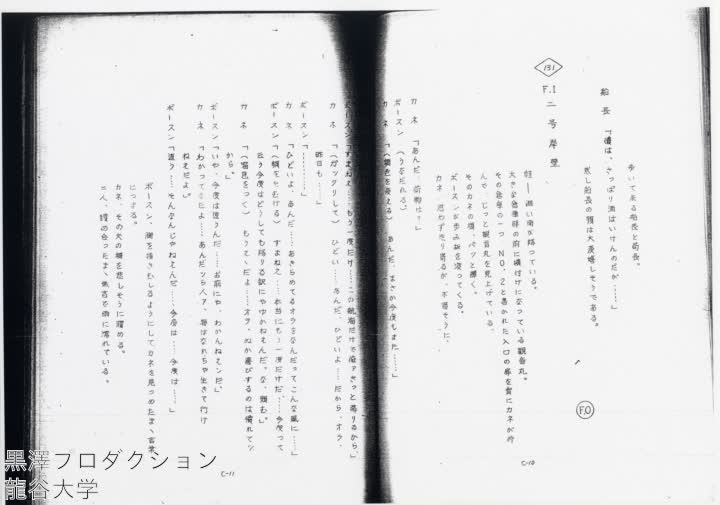 歩いて来る船長と局長。
船長「儂は、さっぱり酒はいけんのだが……」
然し船長の顔は大变嬉しそうである。
F.O
131
F.I 二号岸壁
雨が降っている。
大きな倉庫の前に横付けになっている観音丸。
その倉庫の一つ NO.2と書かれた入口の扉を背にカネが佇
んで、じっと観音丸を見上げている。
そのカネの顔、パッと輝く。
ボースンが歩み板を渡ってくる。
カネ、思わず走り寄るが、不審そうに、
カネ「あんだ、荷物は？」
ボースン（うなだれる）
カネ「（顔色を変える）あんだ、まさか今度もまた……」
C-10
ボースン「すまねえ……もう一度だけ……この航海だけで俺アきっと落りるから」
カネ「（ガックリして）ひどい……あんだ、ひどいよ……だから、オラ、
昨日も……」
ボースン「…………」
カネ「ひどいよ、あんだ……あきらめてるオラをなんだってこんな風に……」
ボースン「（顔をそむける）すまねえ……本当にもう一度だけだ……今度って
云う今度はどうしても降りる訳にゃゆかねえんだ。な、頼む」
カネ「（顔色をつくって）もうえゝだよ……オラ、ぬか喜びするのは慣れてッ
から」
ボースン「いや、今度は違うんだ……お前にや、わかんねえンだ」
カネ「わかってるだよ……あんだッら人ア、海はなれちゃ生きて行け
ねえだよ」
ボースン「違う……そんなんじゃねえんだ……今度は……今度は……」
ボースン、胸を掻きむしるようにしてカネを見つめたまゝ言葉
につまる。
カネ、その夫の顔を悲しそうに眺める。
二人、瞳の合ったまゝ無言で雨に濡れている。
C-11
黒澤プロダクション
龍谷大学